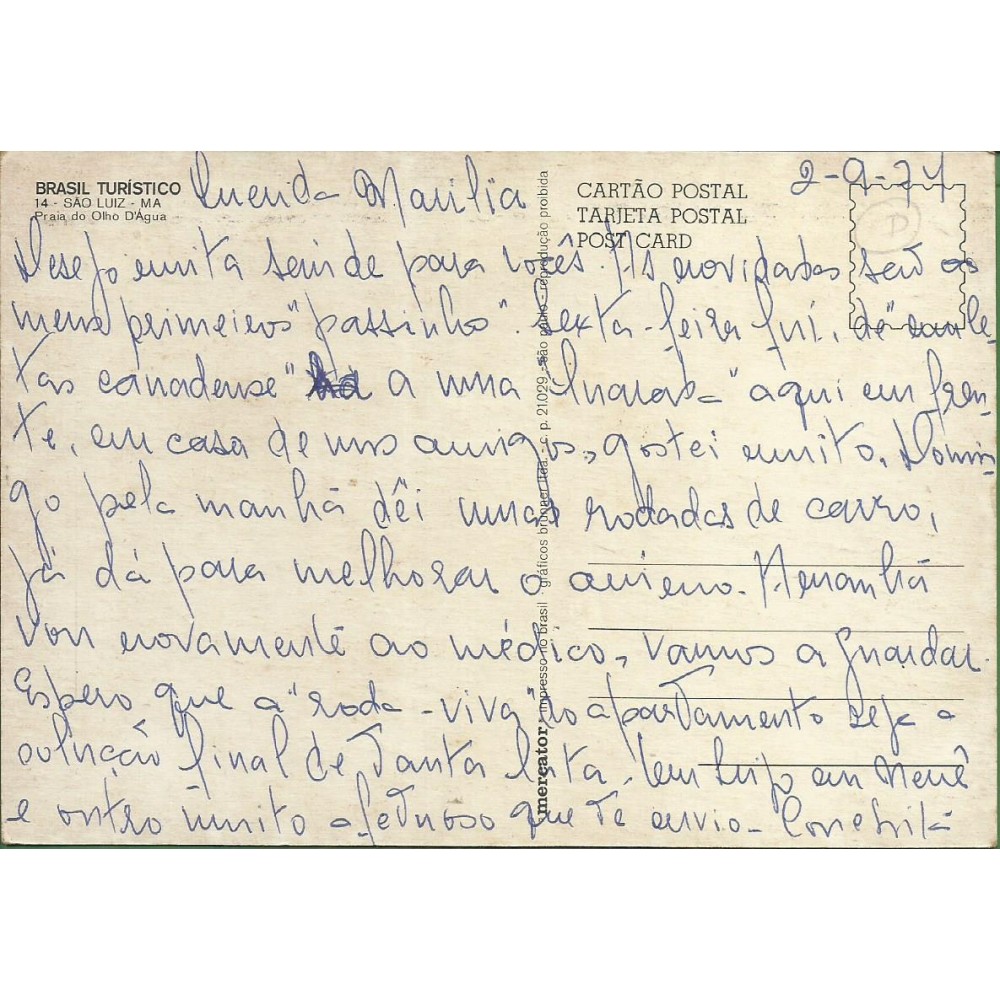 BRASIL TURÍSTICO
14 - SÃO LUIZ - MA
Praia do Olho D'Água
CARTÃO POSTAL
TARJETA POSTAL
POST CARD
mercator · impresso no brasil · gráficos brunner ltda. - c. p. 21.029 - são paulo - reprodução proibida
2-9-77
P
Querida Marilia
Desejo muita saúde para você. As novidades são os
meus primeiros "passinhos". Sexta-feira fui, de "mule-
tas canadense" a uma aqui em fren-
te, em casa de uns amigos, gostei muito. Domin
go pela manhã dêi umas rodadas de carro,
já dá para melhorar o animo. Amanhã
vou novamente ao médico, vamos aguardar.
Espero que a "roda-viva" do apartamento seja a
solução final de tanta luta. Um beijo em Nenê
e outro muito afetuoso que te envio -